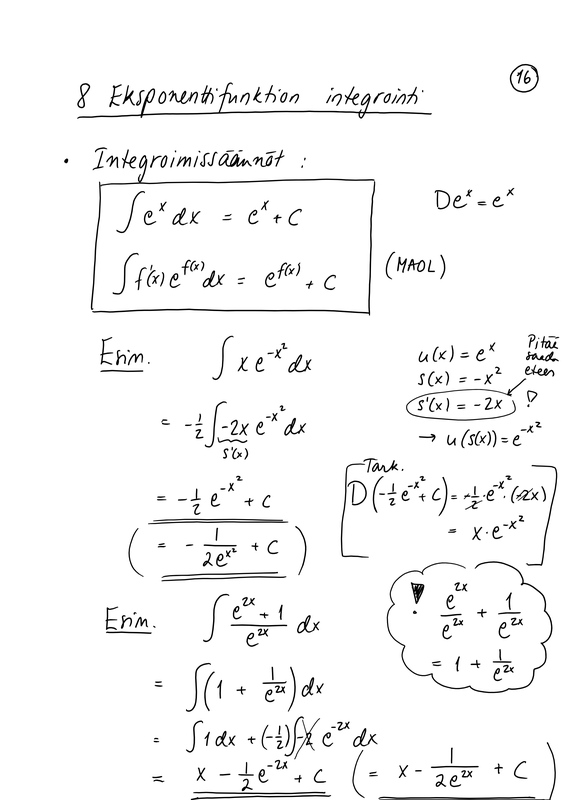 16
8 Eksponenttifunktion integrointi
• Integroimissäännöt :
∫ e^x dx = e^x + C
De^x = e^x
∫ f'(x) e^{f(x)} dx = e^{f(x)} + C
(MAOL)
Esim. ∫ x e^{-x²} dx
= -1/2 ∫ -2x e^{-x²} dx
s'(x)
= -1/2 e^{-x²} + C
( = - 1/(2e^{x²}) + C )
u(x) = e^x
s(x) = -x²
s'(x) = -2x !
→ u(s(x)) = e^{-x²}
Pitää
saada
eteen
Tark.
D(-1/2 e^{-x²} + C) = -1/2 · e^{-x²} · (-2x)
= x · e^{-x²}
Esim. ∫ (e^{2x} + 1)/e^{2x} dx
= ∫ (1 + 1/e^{2x}) dx
= ∫ 1 dx + (-1/2) ∫ -2 e^{-2x} dx
= x - 1/2 e^{-2x} + C ( = x - 1/(2e^{2x}) + C )
! e^{2x}/e^{2x} + 1/e^{2x}
= 1 + 1/e^{2x}